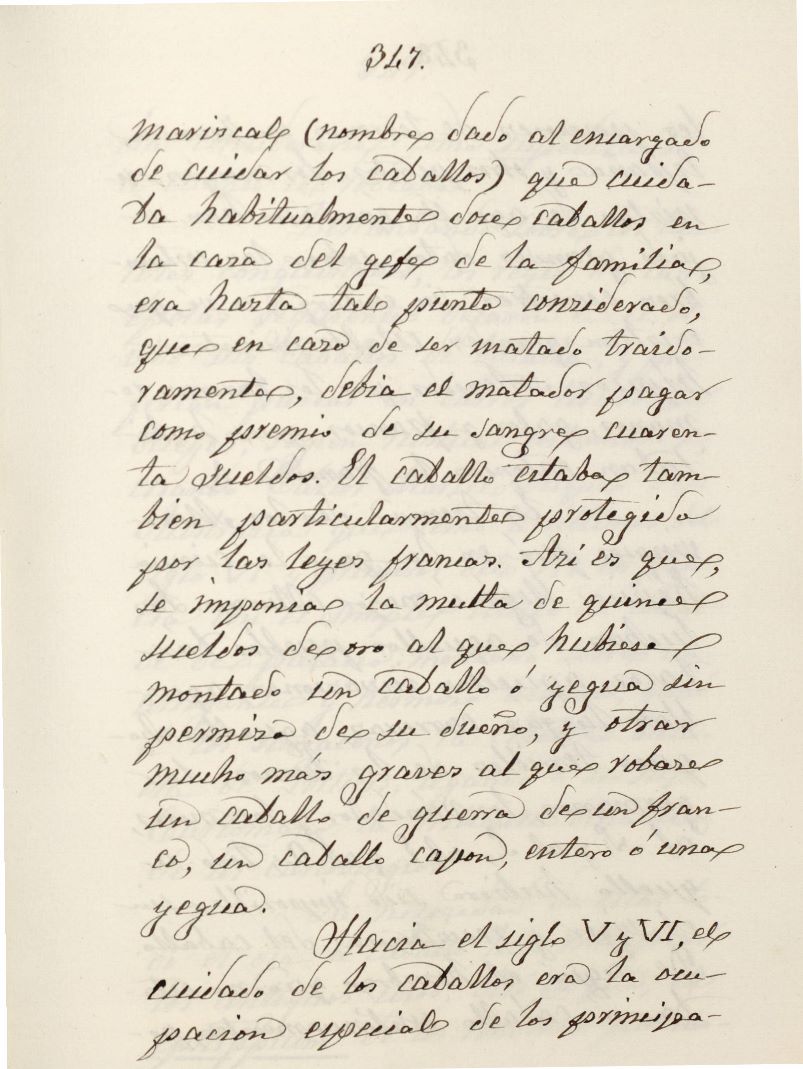 347.
mariscal (nombre dado al encargado
de cuidar los caballos) que cuida-
ba habitualmente doce caballos en
la casa del gefe de la familia,
era hasta tal punto considerado,
que en caso de ser matado traido-
ramente, debia el matador pagar
como premio de su sangre cuaren-
ta sueldos. El caballo estaba tam-
bien particularmente protegido
por las leyes francas. Asi es que,
se imponia la multa de quince
sueldos de oro al que hubiese
montado un caballo ó yegua sin
permiso de su dueño, y otras
mucho más graves al que robase
un caballo de guerra de un fran-
co, un caballo capon, entero ó una
yegua.
Hacia el siglo V y VI, el
cuidado de los caballos era la ocu-
pacion especial de los principa-